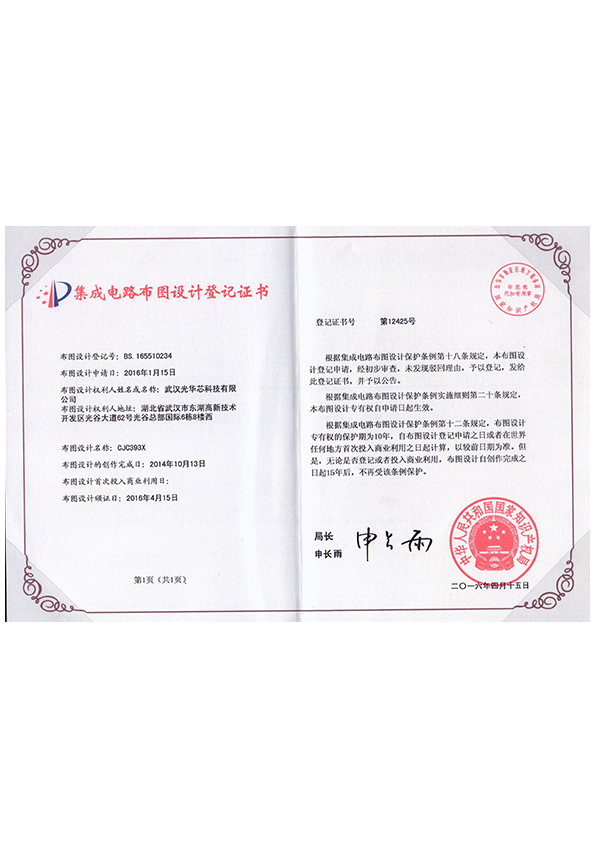 集成电路布图设计登记证书
布图设计登记号：BS. 165510234
布图设计申请日：2016年1月15日
布图设计权利人姓名或名称：武汉光华芯科技有限
公司
布图设计权利人地址：湖北省武汉市东湖高新技术
开发区光谷大道62号光谷总部国际6栋8楼西
布图设计名称：CJC393X
布图设计的创作完成日：2014年10月13日
布图设计首次投入商业利用日：
布图设计颁证日：2016年4月15日
第1页（共1页）
登记证书号 第12425号
根据集成电路布图设计保护条例第十八条规定，本布图设
计登记申请，经初步审查，未发现驳回理由，予以登记，发给
此登记证书，并予以公告。
根据集成电路布图设计保护条例实施细则第二十条规定，
本布图设计专有权自申请日起生效。
根据集成电路布图设计保护条例第十二条规定，布图设计
专有权的保护期为10年，自布图设计登记申请之日或者在世界
任何地方首次投入商业利用之日起计算，以较前日期为准。但
是，无论是否登记或者投入商业利用，布图设计自创作完成之
日起15年后，不再受该条例保护。
局长
申长雨
申长雨
中华人民共和国国家知识产权局
二〇一六年四月十五日